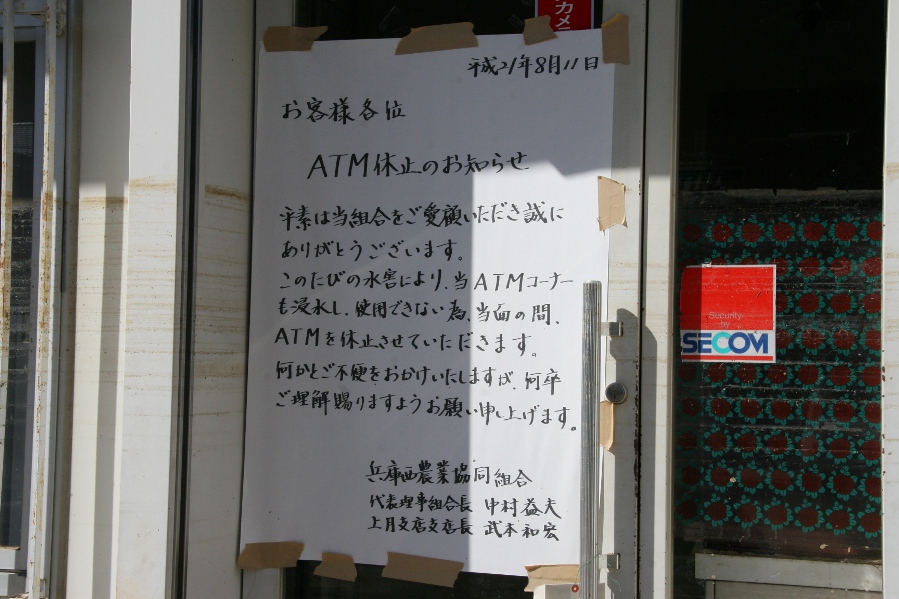 カメ
平成21年8月11日
お客様各位
ATM休止のお知らせ
平素は当組合をご愛顧いただき誠に
ありがとうございます。
このたびの水害により、当ATMコーナー
も浸水し、使用できない為、当面の間、
ATMを休止させていただきます。
何かとご不便をおかけいたしますが、何卒
ご理解賜りますようお願い申し上げます。
兵庫西農業協同組合
代表理事組合長 中村益夫
上月支店支店長 武本和宏
Security
by
SECOM